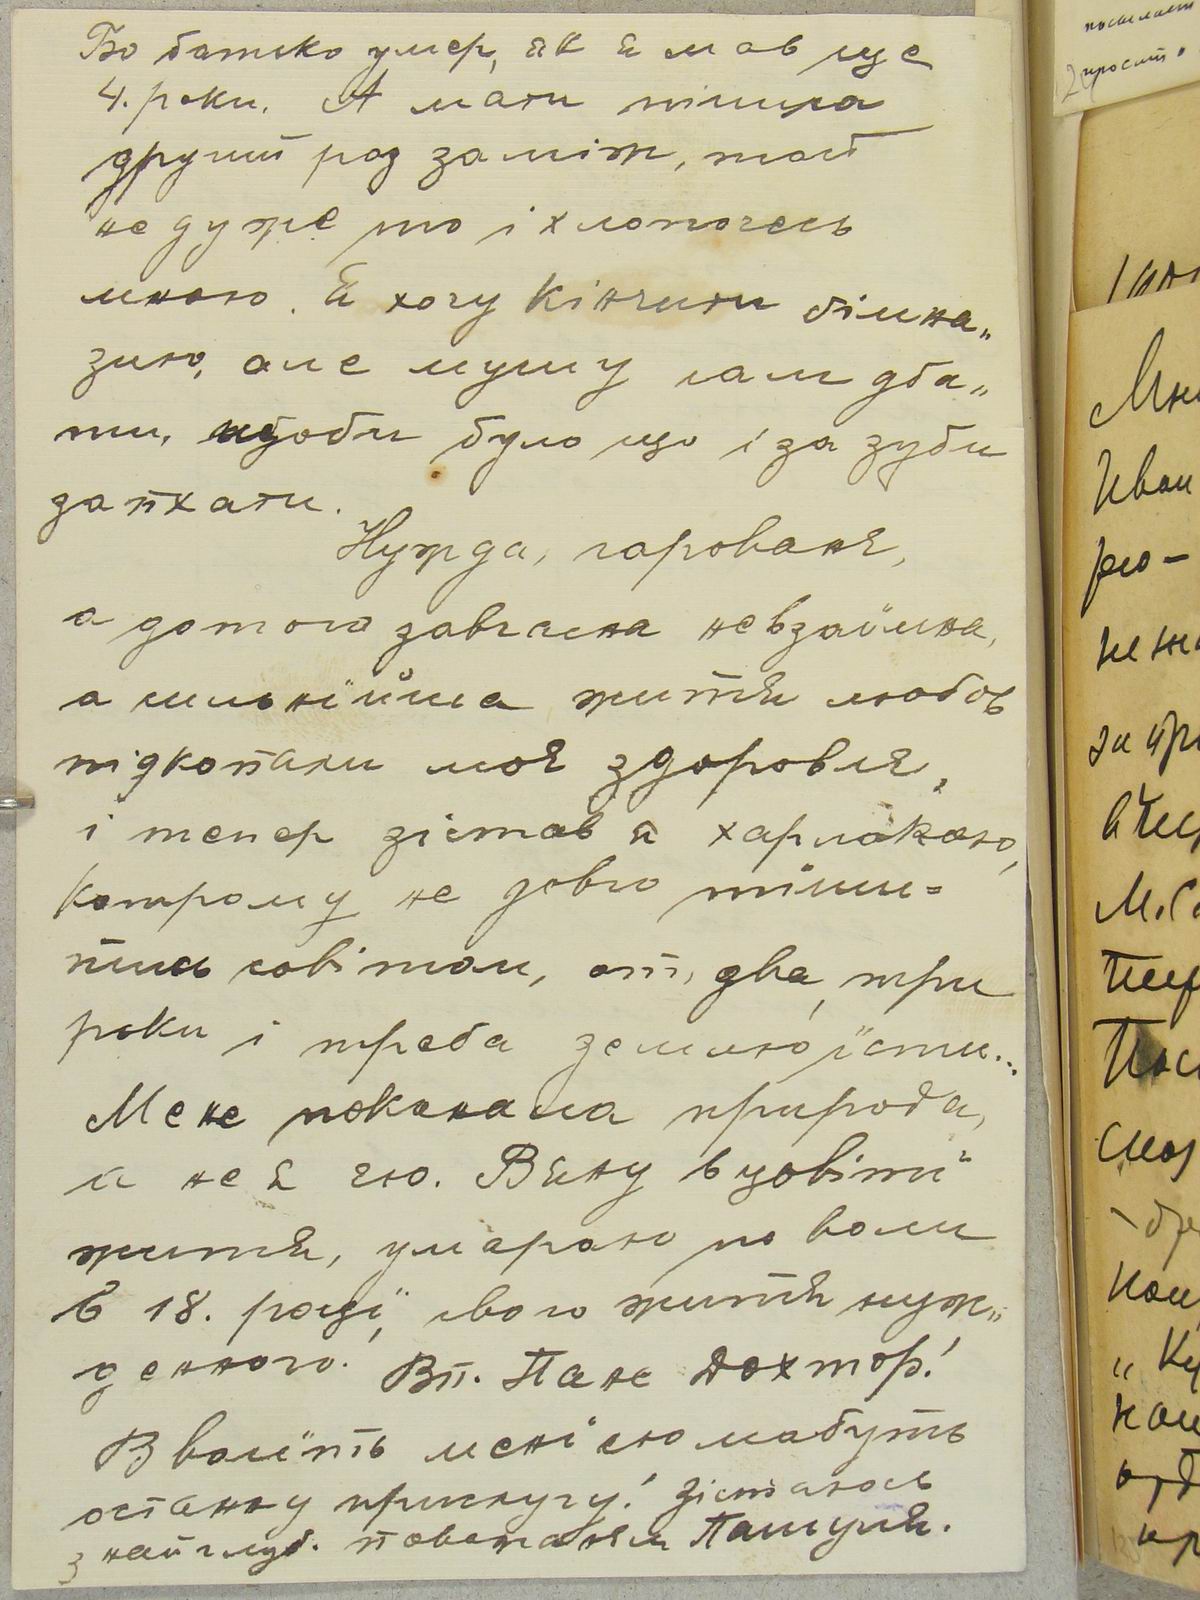 Бо батько умер, як я мав ще
4. роки. А мати пішла
другий раз заміж, той
не дуже то і хлопочесь
мною. Я хочу кінчити ґімна„
зию, але мушу сам дба„
ти, щоби було що і за зуби
запхати.
Нужда, гарованя,
а до того завчасна невзаїмна,
а сильнїйша житя любов
підкопали моє здоровля,
і тепер зістав я харлакою,
котрому не довго тіши=
тись світом, от, два, три
роки і треба землю їсти...
Мене покалала природа,
а не я єю. Вяну в цьвіті
житя, умираю по воли
в 18. роцї, свого житя нуж„
денного. Вп. Пане Дохтор!
Зволїть менї сю мабуть
останну прислугу! Зістаюсь
з найглуб. поважанєм Пащуля.
посилает
просит.
Мно
Иван
рю-
не
М.С
Пер
Пос
скор
„Ку